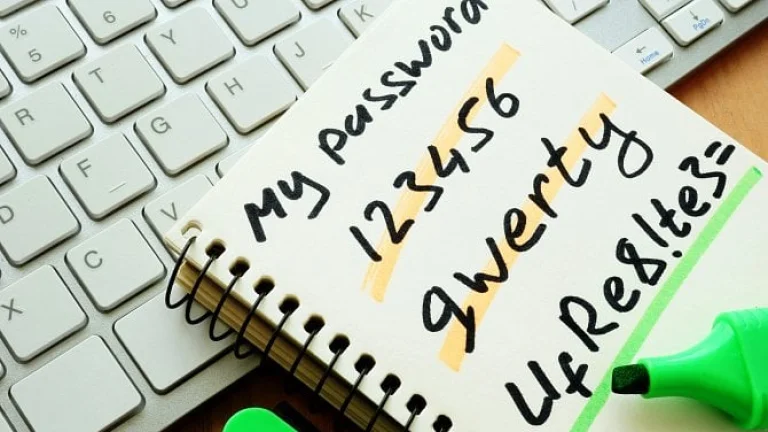 My password
123456
qwerty
UfRe8!te3=
%
5
6
R T Y
D F G H J K
X C V
Home
PgDn